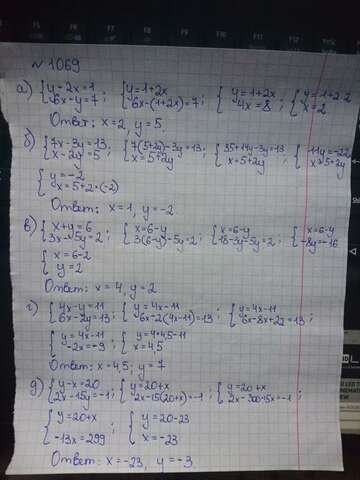 №1069
а) {y-2x=1 6x-y=7; {y=1+2x 6x-(1+2x)=7; {y=1+2x 4x=8; {y=1+2·2 x=2
Ответ: x=2, y=5.
б) {7x-3y=13, x-2y=5; {7(5+2y)-3y=13 x=5+2y; {35+14y-3y=13 x=5+2y; {11y=-22 x=5+2y
{y=-2 x=5+2·(-2)
Ответ: x=1, y=-2
в) {x+y=6 3x-5y=2; {x=6-y 3(6-y)-5y=2; {x=6-y 18-3y-5y=2; {x=6-y -8y=-16
{x=6-2 y=2
Ответ: x=4, y=2
г) {4x-y=11 6x-2y=13; {y=4x-11 6x-2(4x-11)=13; {y=4x-11 6x-8x+22=13;
{y=4x-11 -2x=-9; {y=4·4,5-11 x=4,5
Ответ: x=4,5; y=7
д) {y-x=20 2x-15y=-1; {y=20+x 2x-15(20+x)=-1; {y=20+x 2x-300-15x=-1;
{y=20+x -13x=299; {y=20-23 x=-23
Ответ: x=-23, y=-3.